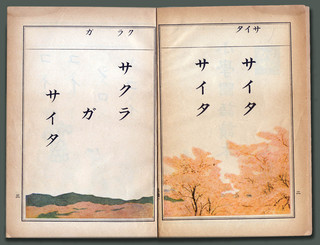 サイタ
サイタ
サイタ
二
クラ ガ
サクラ
ガ
サイタ
三